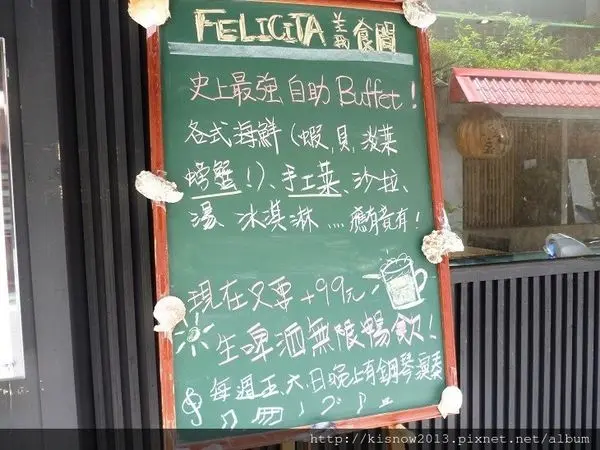 FELICITA 義食間
史上最強自助Buffet!
各式海鮮(蝦,貝,淡菜
螃蟹!)、手工菜、沙拉、
湯、冰淇淋....應有竟有!
現在只要+99元
生啤酒無限暢飲!
每週五.六.日晚上有鋼琴演奏
http://kisnow2013.pixnet.net/album